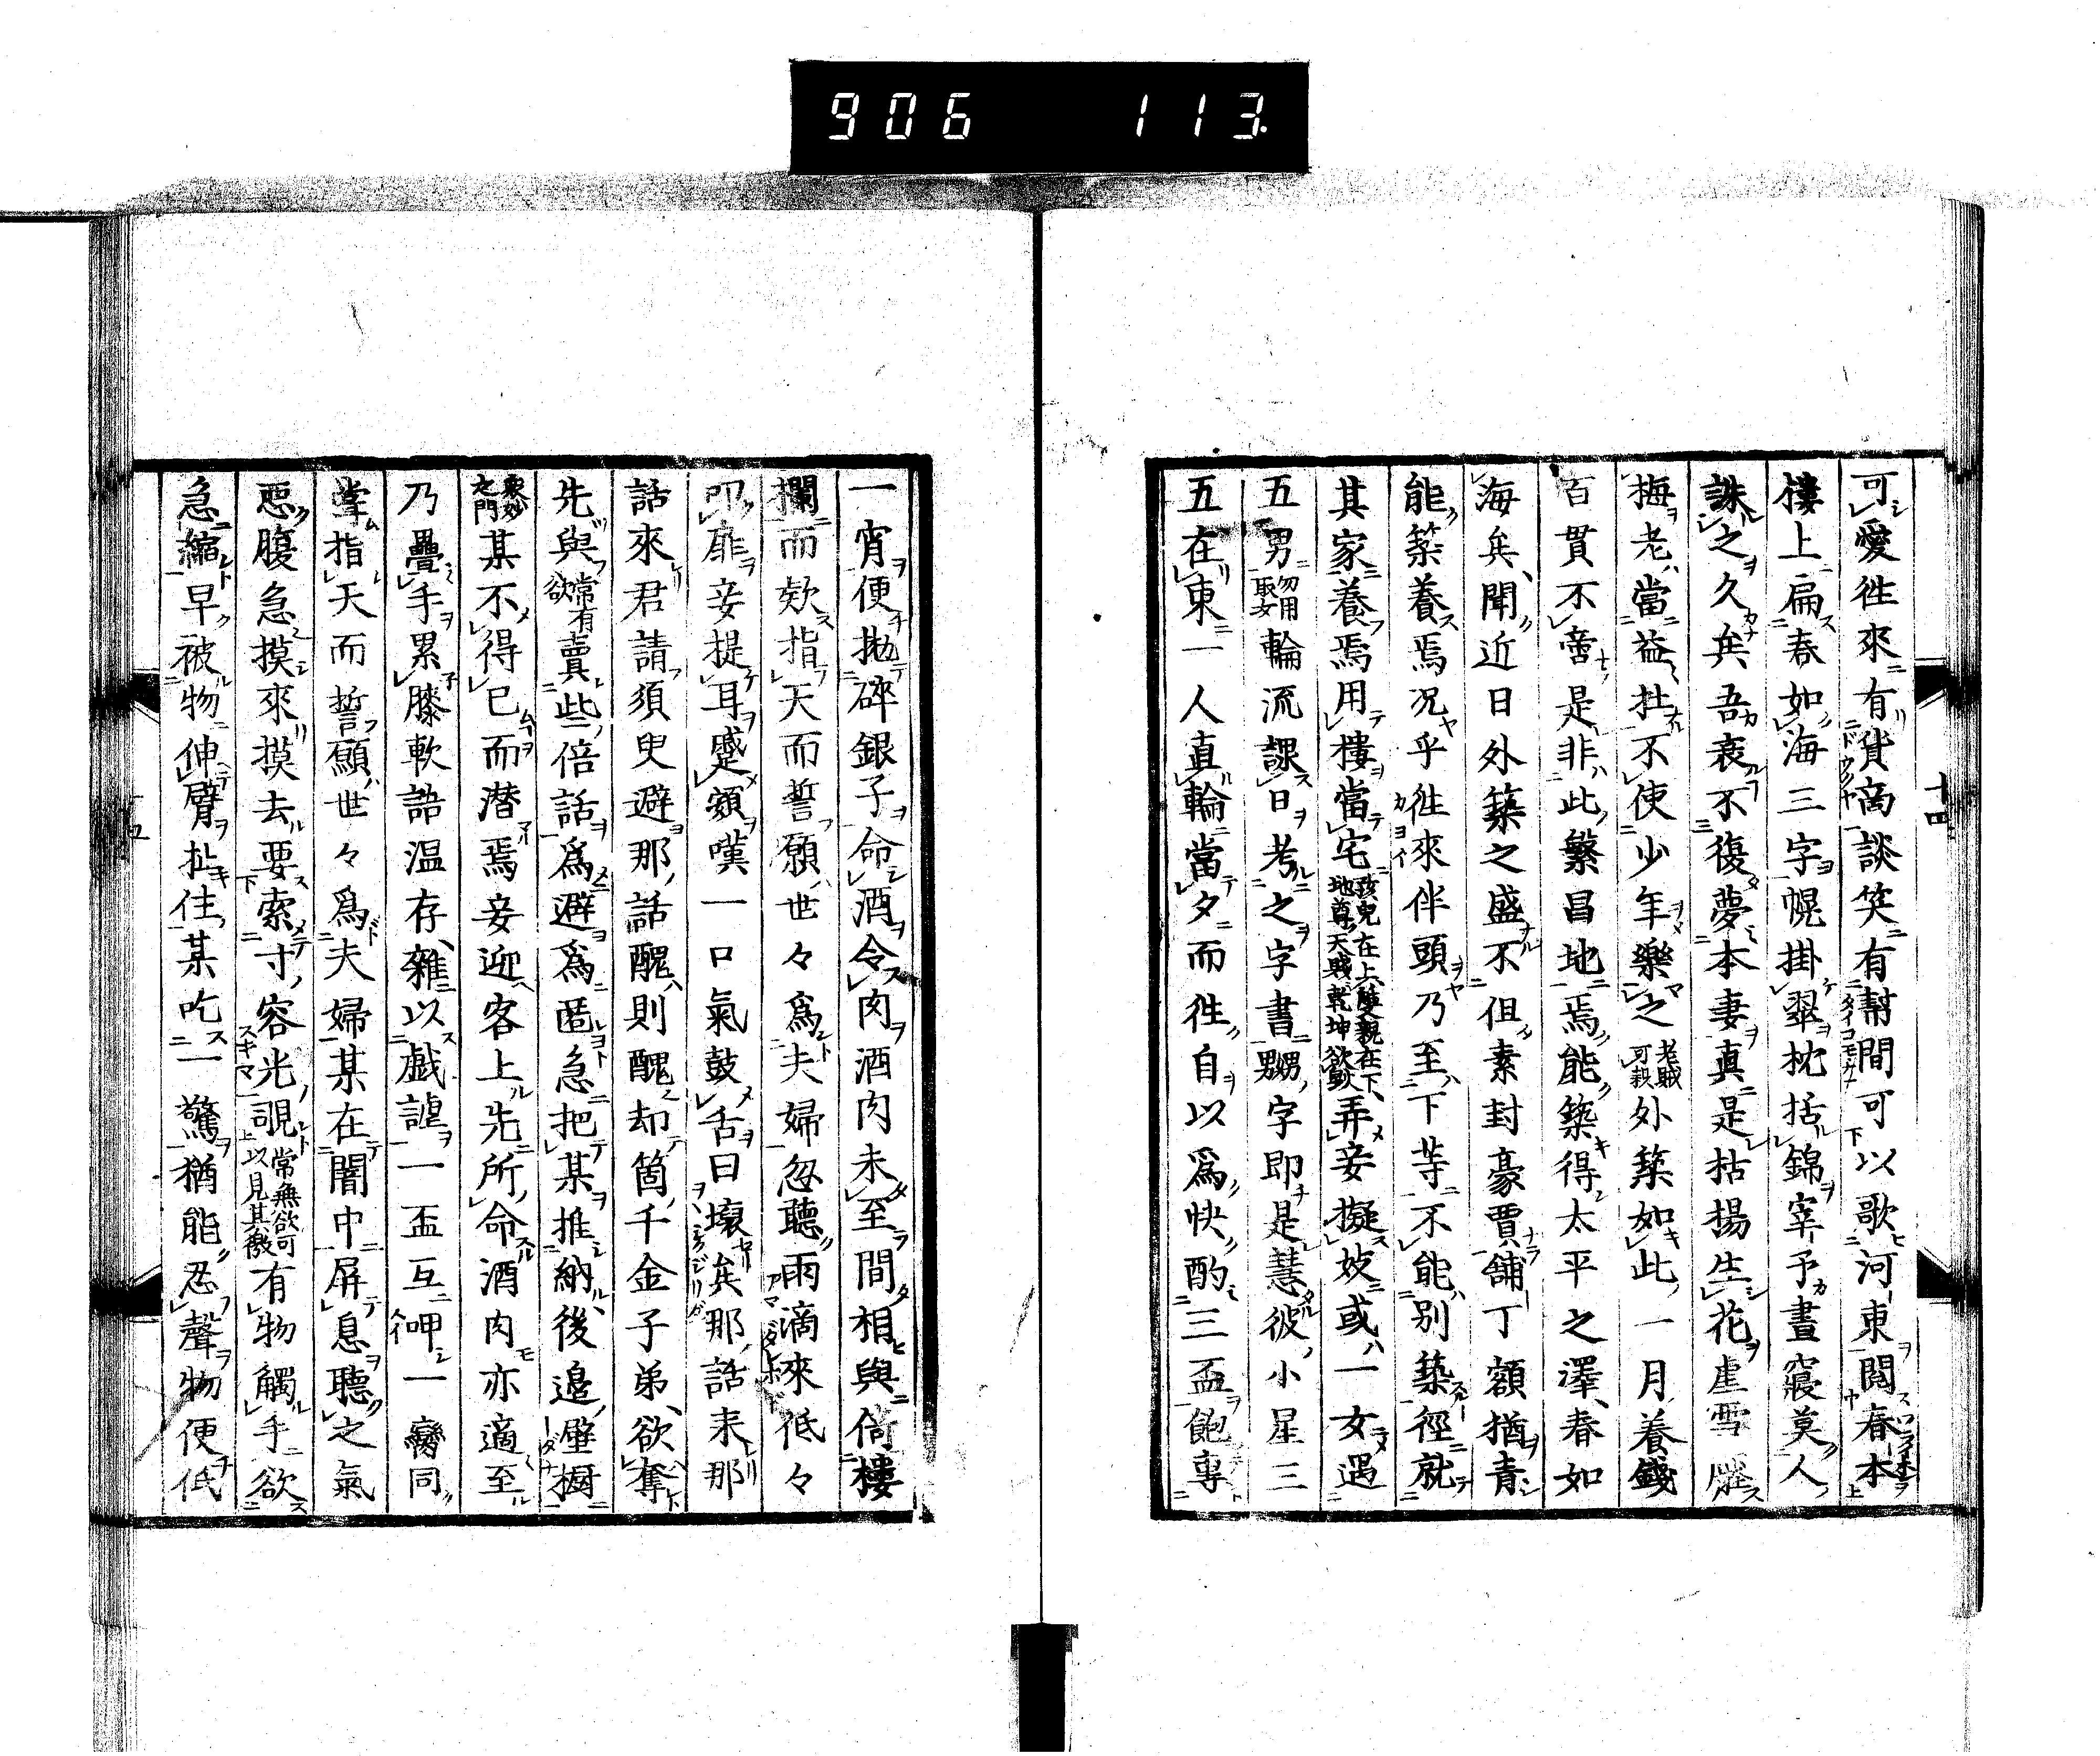 906 113
十四
可愛徃來有貨商談笑有幇間可以歌河東閲春本
樓上扁春如海三字幌掛翠枕括錦宰予晝寢莫人
誅之久矣吾衰不復夢本妻真是枯楊生花虐雪
梅老當益壯不使少年樂之老賊可殺外築如此一月養錢
百貫不啻是非此繁昌地焉能築得太平之澤春如
海矣聞近日外築之盛不但素封豪賈舗丁額猶青
能築養焉况乎徃來伴頭乃至下等不能別築徑就
其家養焉用樓當宅孩兒在上雙親在下地尊天賤乾坤欲弄妾擬妓或一女遇
五男勿用取女輪流課日考之字書嬲字即是慧彼小星三
五在東一人直輪當夕而徃自以爲快酌三盃飽專
一宵便抛碎銀子命酒令肉酒肉未至間相與倚樓
欄而欸指天而誓願世々爲夫婦忽聽雨滴來低々
叩扉妾提耳蹙額嘆一口氣鼓舌曰壞矣那話来那
話來君請須臾避那話醜則醜却箇千金子弟欲奪
先與常有欲賣些倍話爲避爲匿急把某推納後邉壁橱
衆妙之門某不得已而潜焉妾迎客上先所命酒肉亦適至
乃疊手累膝軟語温存雜以戯謔一盃互呷一臠同
掌指天而誓願世々爲夫婦某在闇中屏息聽之氣
惡腹急摸來摸去要索寸容光覗常無欲可以見其徼有物觸手欲
急縮早被物伸臂扯住某吃一驚猶能忍聲物便低